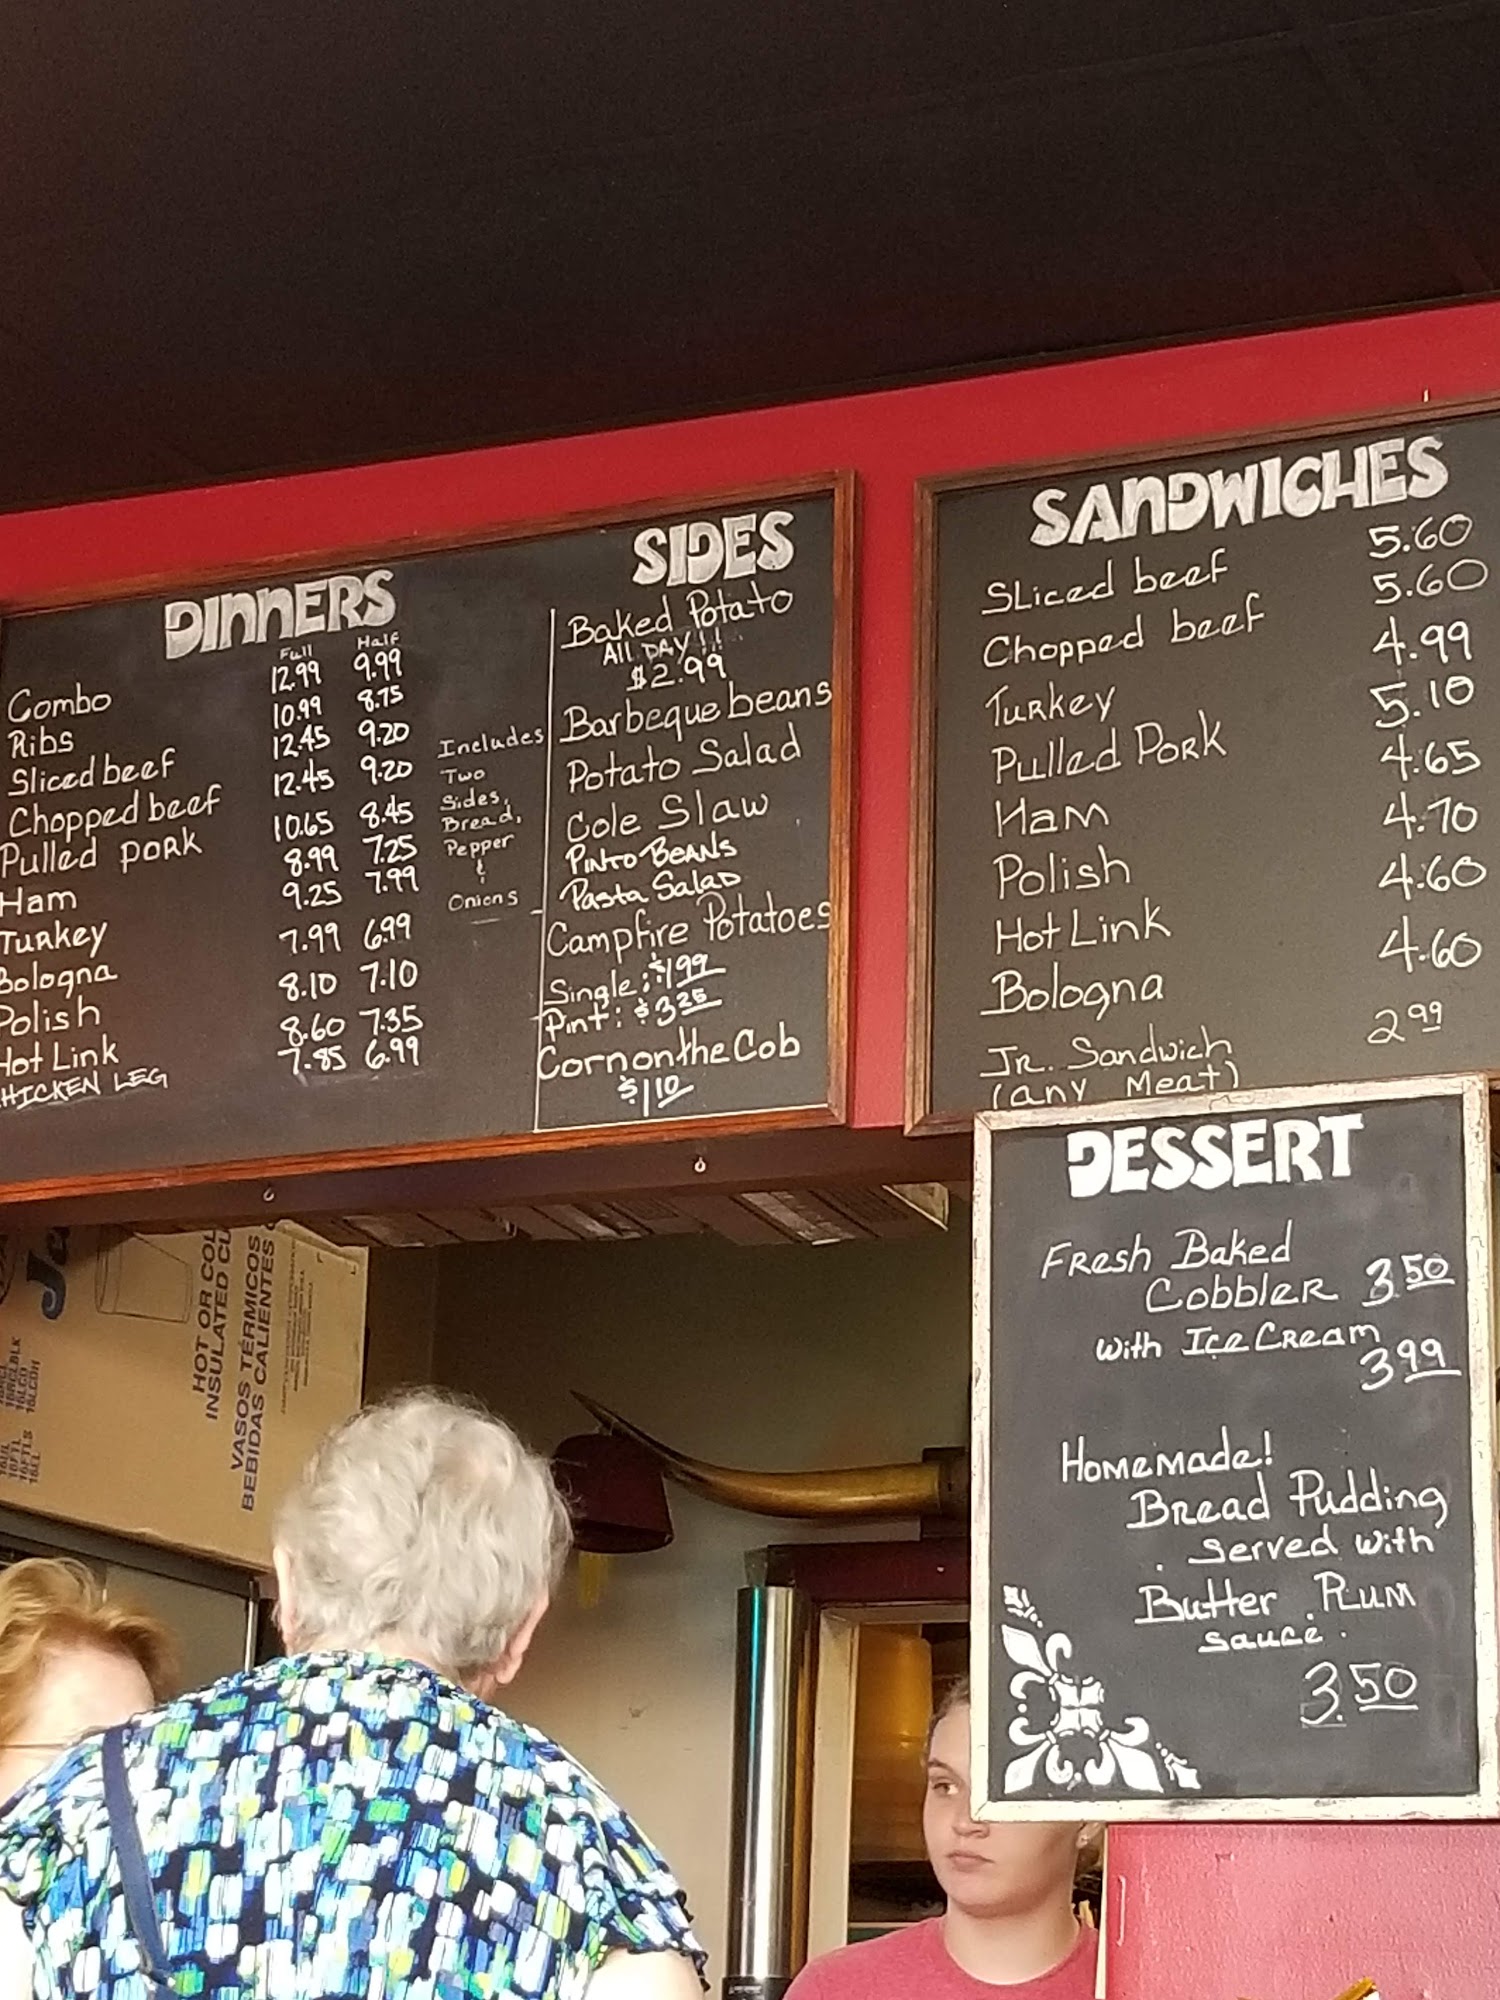 DINNERS
Full Half
Combo 12.99 9.99
Ribs 10.99 8.75
Sliced beef 12.45 9.20
Chopped beef 12.45 9.20
Pulled pork 10.65 8.45
Ham 8.99 7.25
Turkey 9.25 7.99
Bologna 7.99 6.99
Polish 8.10 7.10
Hot Link 8.60 7.35
HICKEN LEG 7.85 6.99
Includes
Two
Sides,
Bread,
Pepper
&
Onions
SIDES
Baked Potato
All DAY!!!
$2.99
Barbeque beans
Potato Salad
Cole Slaw
Pinto Beans
Pasta Salad
Campfire Potatoes
Single: $1.99
Pint: $3.25
Corn on the Cob
$1.10
SANDWICHES
Sliced beef 5.60
Chopped beef 5.60
Turkey 4.99
Pulled Pork 5.10
Ham 4.65
Polish 4.70
Hot Link 4.60
Bologna 4.60
Jr. Sandwich 2.99
(any Meat)
DESSERT
Fresh Baked
Cobbler 3.50
with Ice Cream
3.99
Homemade!
Bread Pudding
Served with
Butter Rum
sauce.
3.50
HOT OR COL
INSULATED CU
VASOS TÉRMICOS
BEBIDAS CALIENTES
16LCD
16LCDH
16FTL
16FTLS